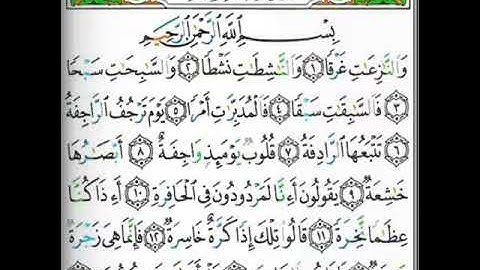 بِسْمِ اللَّهِ الرَّحْمَٰنِ الرَّحِيمِ
وَالنَّٰزِعَٰتِ غَرْقًا ١ وَالنَّٰشِطَٰتِ نَشْطًا ٢ وَالسَّٰبِحَٰتِ سَبْحًا
٣ فَالسَّٰبِقَٰتِ سَبْقًا ٤ فَالْمُدَبِّرَٰتِ أَمْرًا ٥ يَوْمَ تَرْجُفُ الرَّاجِفَةُ
٦ تَتْبَعُهَا الرَّادِفَةُ ٧ قُلُوبٌ يَوْمَئِذٍ وَاجِفَةٌ ٨ أَبْصَٰرُهَا
خَٰشِعَةٌ ٩ يَقُولُونَ أَءِنَّا لَمَرْدُودُونَ فِي الْحَافِرَةِ ١٠ أَءِذَا كُنَّا
عِظَٰمًا نَّخِرَةً ١١ قَالُوا تِلْكَ إِذًا كَرَّةٌ خَاسِرَةٌ ١٢ فَإِنَّمَا هِيَ زَجْرَةٌ